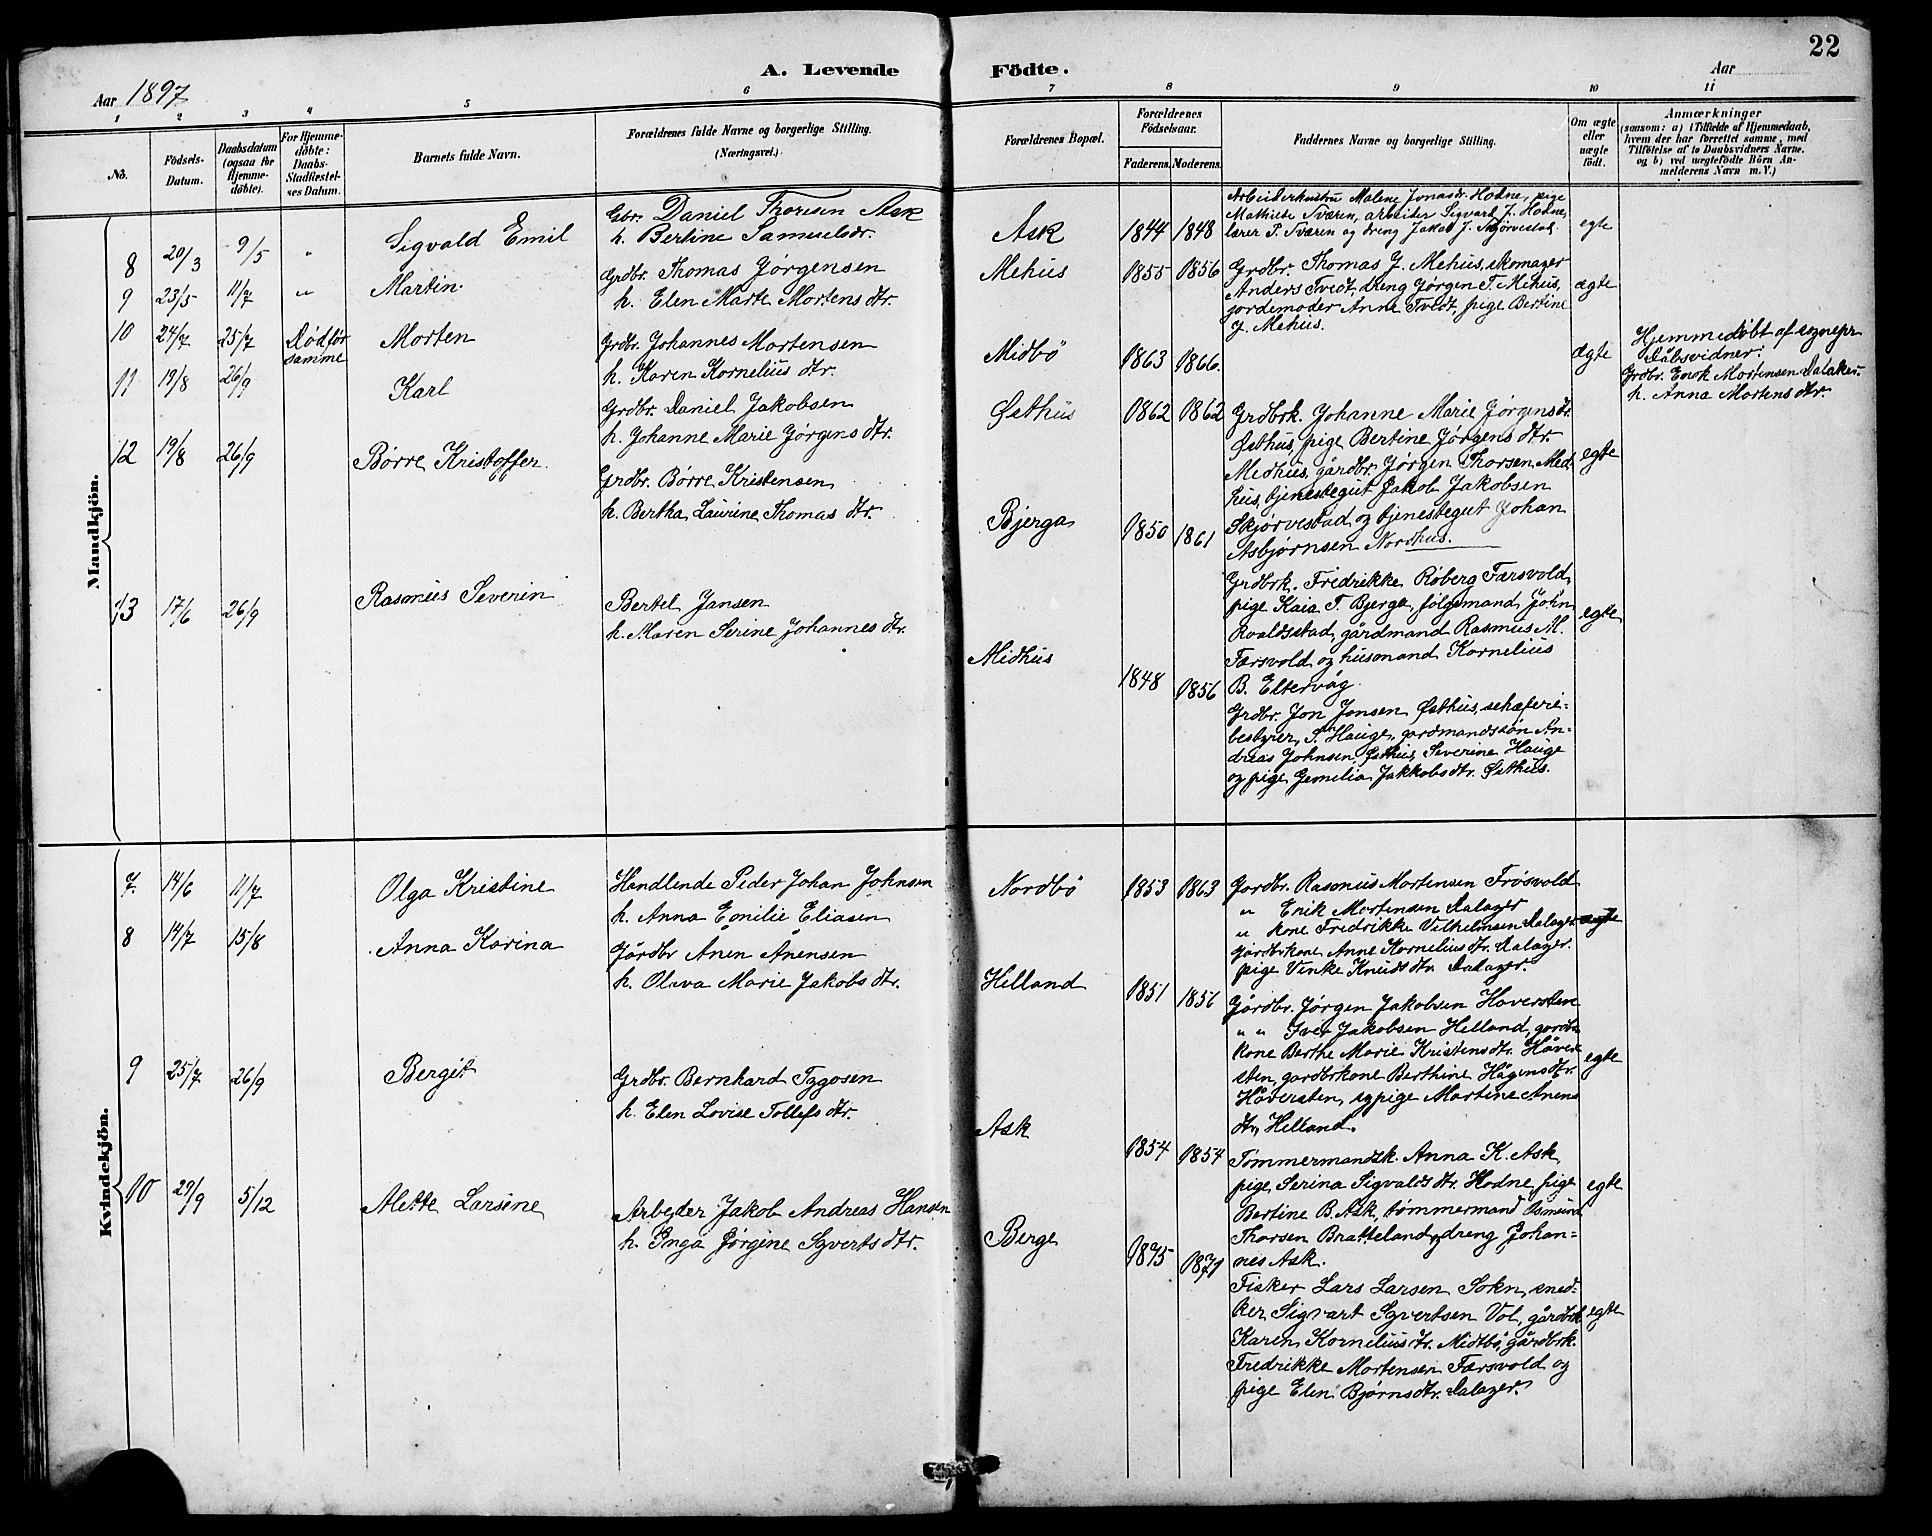 22
A. Levende Födte.
Aar 1897
Aar
1 2 3 4 5 6 7 8 9 10 11
No.
Födsels-Datum.
Daabsdatum (ogsaa for Hjemme-döbte).
For Hjemme-döbte: Daabs-Stadfæstel-ses Datum.
Barnets fulde Navn.
Forældrenes fulde Navne og borgerlige Stilling. (Næringsvei.)
Forældrenes Bopæl.
Forældrenes Födselsaar.
Faderens. Moderens.
Faddernes Navne og borgerlige Stilling.
Om ægte eller uægte födt.
Anmærkninger
(saasom: a) i Tilfælde af Hjemmedaab, hvem der har forrettet samme, med Tilföielse af to Daabsvidners Navne, og b) ved uægtefödte Börn An-melderens Navn m. V.)
Mandkjön.
8 20/3 9/5 " Sigvald Emil
Gbr. Daniel Thorsen Ask
h. Bertine Samuelsdr.
Ask 1844 1848
Arbeiderhustru Malene Jonasdr. Hodne, pige
Mathilde Sværen, arbeider Sigvart J. Hodne,
lærer P. Sværen og dreng Jakob J. Skjørvestad.
egte
9 23/5 11/7 " Martin
Grdbr. Thomas Jørgensen
h. Elen Marte Mortens dtr.
Mehus 1855 1856
Grdbr. Thomas J. Mehus, skomager
Anders Tvedt, dreng Jørgen T. Mehus,
jordemoder Anne Tvedt, pige Bertine
J. Mehus.
ægte
10 24/7 25/7 Død før samme Morten
Grdbr. Johannes Mortensen
h. Karen Kornelius dtr.
Midbö 1863 1866.
ægte
Hjemmedöbt af sognepr.
Dåbsvidner:
Grdbr. Enok Mortensen Dalaker.
h. Anna Mortens dtr.
11 19/8 26/9 Karl
Grdbr. Daniel Jakobsen
h. Johanne Marie Jörgens dtr.
Østhus 1862 1862
Grdbrk. Johanne Marie Jörgensdr.
Østhus, pige Bertine Jörgens dtr.
Medhus, gårdbr. Jörgen Thorsen Med-
hus, tjenestegut Jakob Jakobsen
Skjørvestad og tjenestegut Johan
Asbjørnsen Nordhus.
egte
12 19/8 26/9 Børre Kristoffer.
Grdbr. Børre Kristensen
h. Bertha Laurine Thomas dtr.
Bjerga 1850 1861
Grdbrk. Fridrikke Roberg Færsvold,
pige Kaia T. Bjerga, følgemand John
Roaldsstad, gårdmand Rasmus M.
Færsvold og husmand Kornelius
B. Eltervåg.
egte
13 17/6 26/9 Rasmus Severin
Bertel Jansen
h. Maren Serine Johannes dtr.
Midhus 1848 1856
Grdbr. Jon Jonsen Østhus, schæferie-
bestyrer S. Hauge, gardmandssøn An-
dreas Johnsen Østhus, Severine Hauge
og pige Gemelia Jakkobsdtr. Østhus.
Kvindekjön.
7. 14/6 11/7 Olga Kristine
Handlende Peder Johan Johnsen
h. Anna Emilie Eliasen
Nordbö 1853 1863
Gardbr. Rasmus Mortensen Frösvold
" Erik Mortensen Dalager
" kone Fredrikke Vilhelmsen Dalager
Gårdbrkone Anne Kornelius dtr. Dalager.
pige Vinke Knuds dtr. Dalager.
ægte
8 14/7 15/8 Anna Karina
Gårdbr Ånen Ånensen
h. Olava Marie Jakobs dtr.
Helland 1851 1856
Gårdbr. Jørgen Jakobsen Haversten
" " Iver Jakobsen Helland, gardbr.
kone Berthe Marie Kristensdtr. Håver-
sten, gardbrkone Berthine Hågensdtr.
Håversten, og pige Martine Anens
dtr. Helland.
egte
9 25/7 26/9 Bergit
Grdbr. Bernhard Tygosen
h. Elen Lovise Tollefs dtr.
Ask 1854 1854
Tømmermandsk. Anna K. Ask,
pige Serina Sigvalds dtr. Hodne, pige
Bertine B. Ask, tømmermand Osmund
Thorsen Bratteland og dreng Johan-
nes Ask.
egte
10 29/9 5/12 Alette Larsine
Arbejder Jakob Andreas Hansen
h. Inga Jørgine Syverts dtr.
Berge 1875 1871
Fisker Lars Larsen Sokn, sned-
ker Sigvart Syvertsen Vol, gårdbrk
Karen Kornelius dtr. Midtbö, gårdbrk.
Fredrikke Mortensen Færsvold og
pige Elen Bjørnsdtr. Dalager.
egte